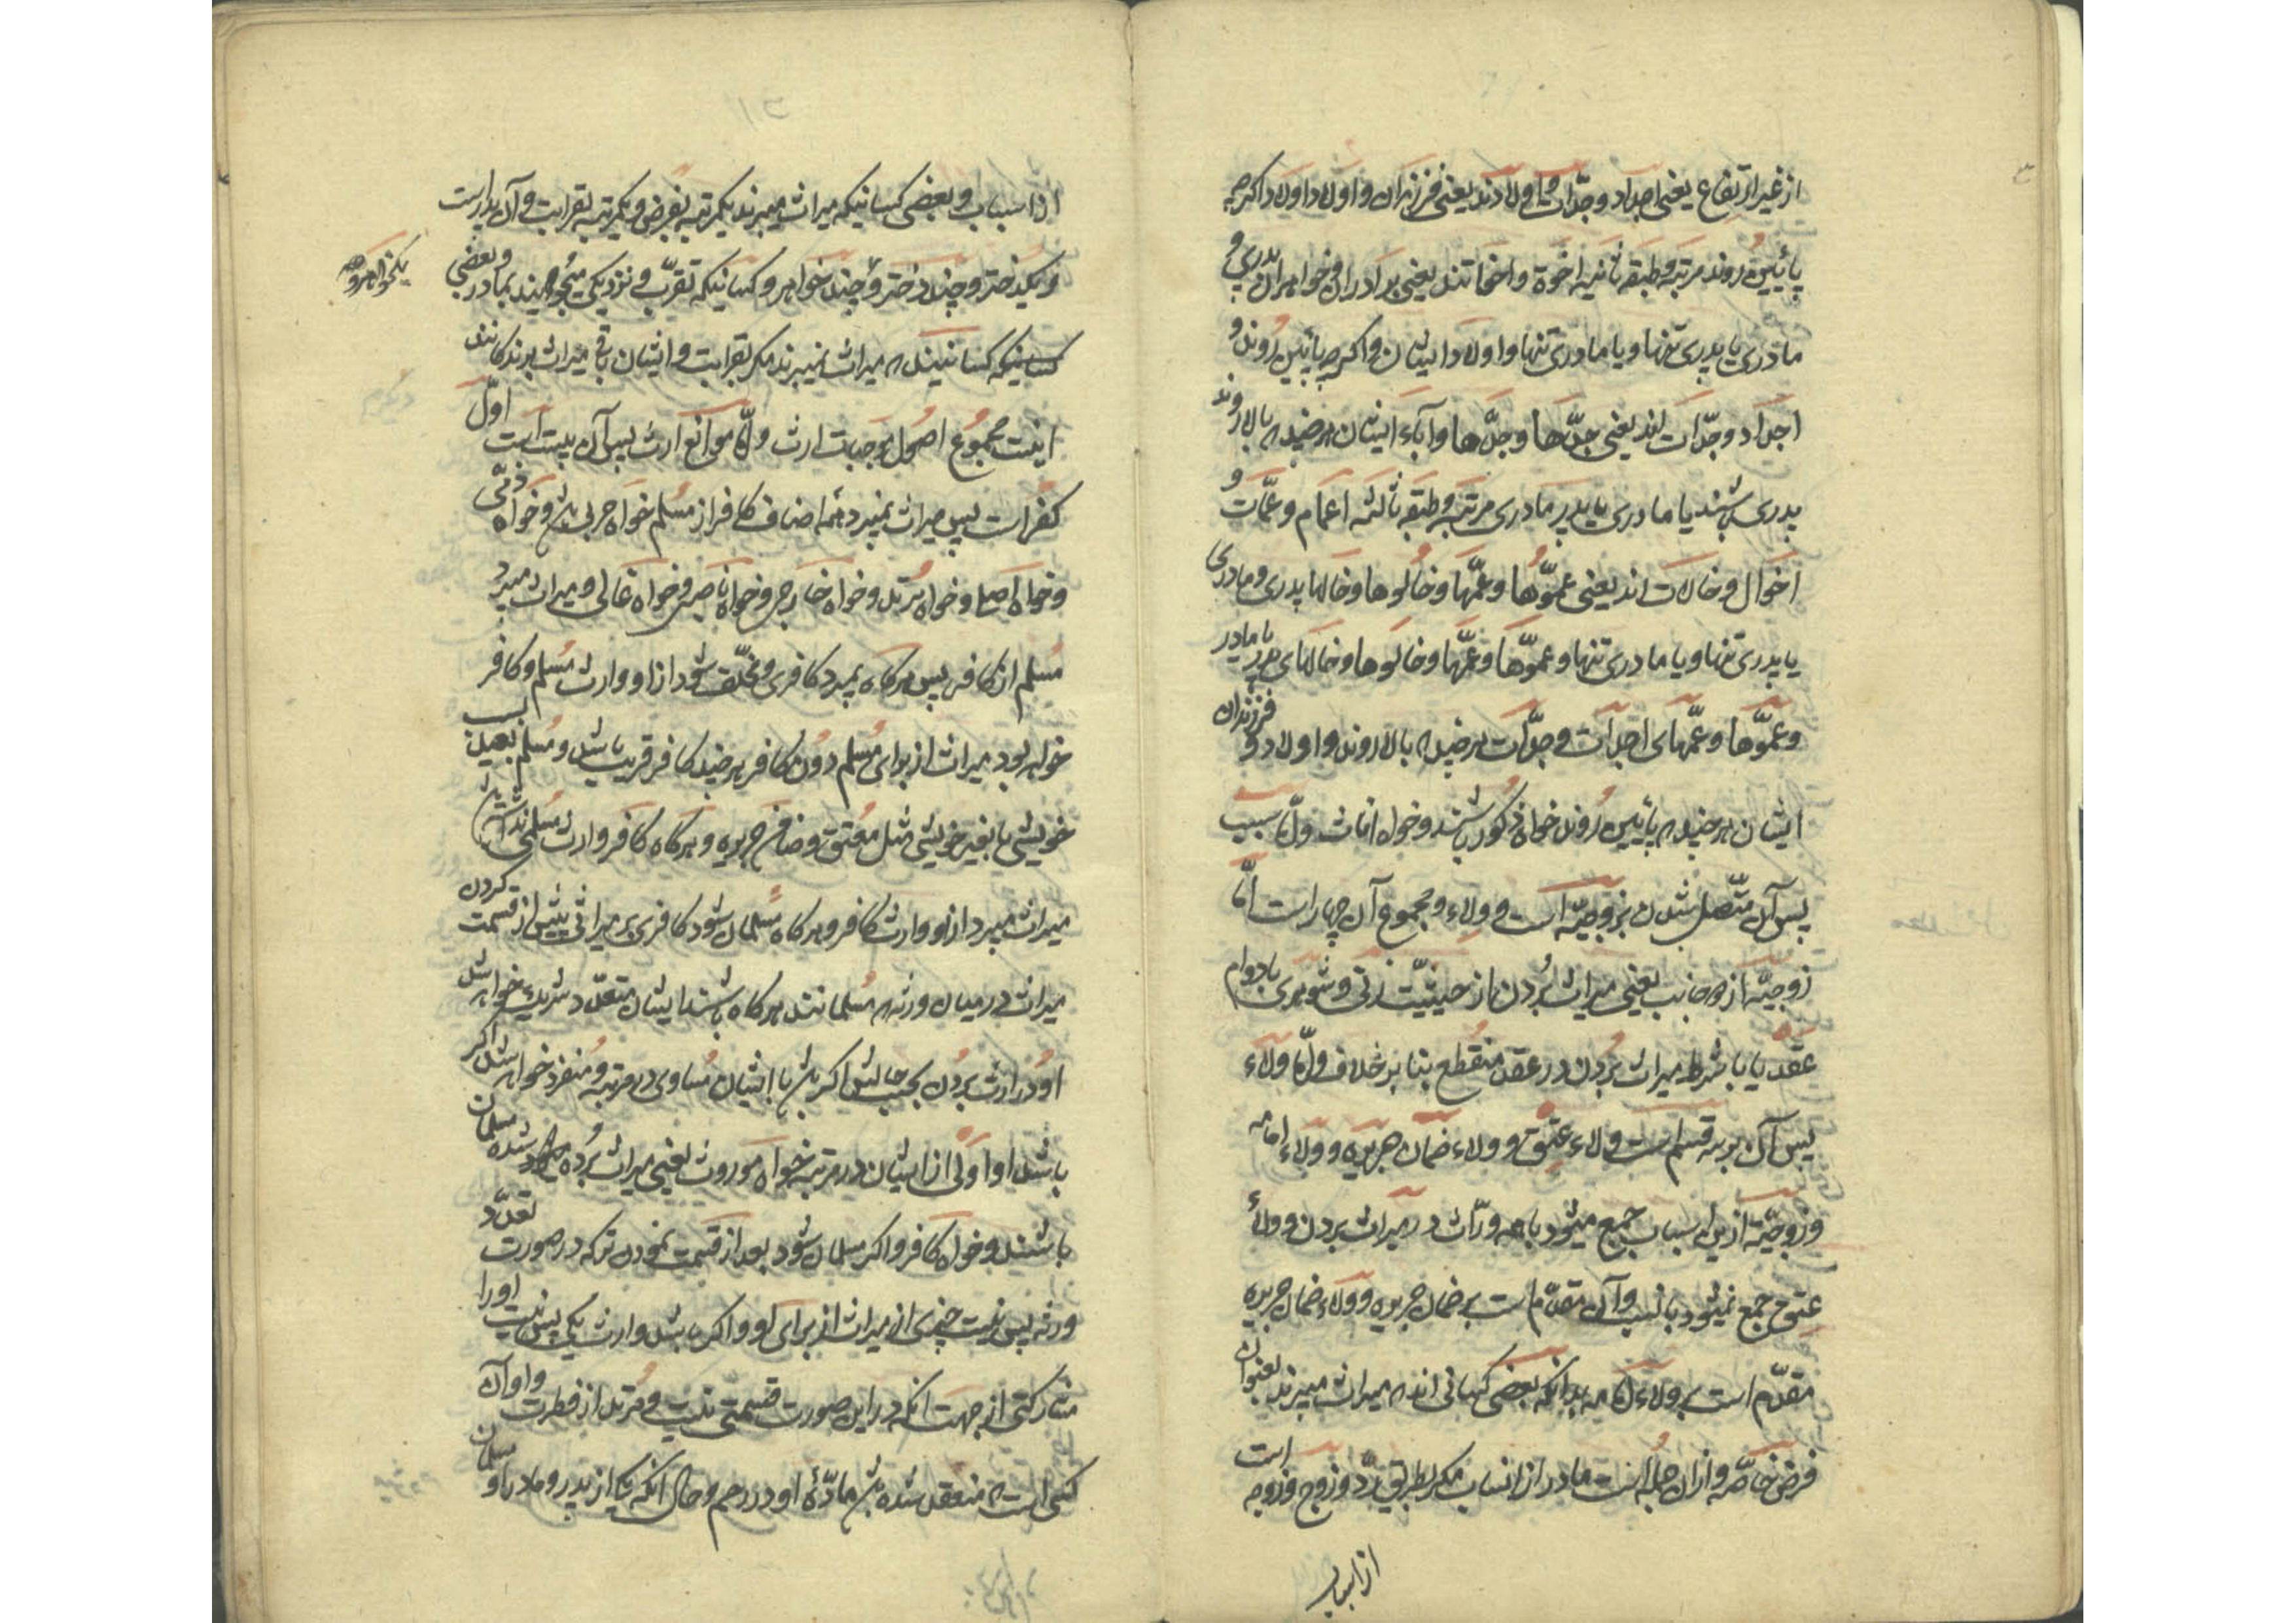 از غیر ارتفاع یعنی اجداد و جدّات و اولادند یعنی فرزندان و اولاد اولاد اگرچه
پائین روند مرتبه و طبقه ثانیه اخوة و اخواتند یعنی برادران و خواهران پدری و
مادری یا پدری تنها و یا مادری تنها و اولاد ایشان و اگرچه پائین روند و
اجداد و جدّات اند یعنی جدّها و جدّها و آباء ایشان هرچند که بالا روند
پدری باشند یا مادری یا پدر مادری مرتبه و طبقه ثالثه اعمام و عمّات و
اخوال و خالات اند یعنی عموّها و عمّها و خالوها و خالها پدری و مادری
یا پدری تنها و یا مادری تنها و عموّها و عمّها و خالوها و خالهای پدر یا مادر
و عموّها و عمّهای اجداد و جدّات هرچند که بالا روند و اولاد و فرزندان
ایشان هرچند که پائین روند خواه ذکور باشند و خواه اناث و امّا سبب
پس آن متّصل شدن بزوجیّه است و ولاء و مجموع آن چهار است امّا
زوجیّه از دو جانب یعنی میراث بردن از حیثیّت زنی و شوهری با دوام
عقد یا با شرط میراث بردن در عقد منقطع بنا بر خلاف و امّا ولاء
پس آن بر سه قسم است ولاء عتق و ولاء ضمان جریره و ولاء امامه
و زوجیّه ازین اسباب جمع میشود با همه ورّاث در میراث بردن و ولاء
عتق جمع نمیشود با نسب و آن مقدّم است بر ضمان جریره و ولاء ضمان جریره
مقدّم است بر ولاء امامه بدانکه بعضی کسانی اند که میراث میبرند بعنوان
فرض خاصّه و ازان جمله است مادر از انساب مگر بطریق ردّ و زوج و زوجه است
از اسباب
از اسباب و بعضی کسانیکه میراث میبرند یکمرتبه بفرض و یکمرتبه بقرابت و آن پدر است
و یکدختر و چند دختر و چند خواهر و کسانیکه تقرّب و نزدیکی میجویند بمادر و بعضی
یکخواهر و
کسانیکه کسانیند که میراث نمیبرند مگر بقرابت و ایشان باقی میراث برندگانند
اینست مجموع اصول موجبات ارث و امّا موانع ارث پس آن بیست است اوّل
کفر است پس میراث نمیبرد همه اصناف کافر از مسلم خواه حربی باشد و خواه ذمّی
و خواه اصلی و خواه مرتد و خواه خارجی و خواه ناصبی و خواه غالی و میراث میبرد
مسلم از کافر پس هرگاه بمیرد کافری و مخلّف شود از او وارث مسلم و کافر
خواهد بود میراث از برای مسلم دون کافر هرچند کافر قریب باشد و مسلم بعید نسب
خویشی یا بغیر خویشی مثل معتق و ضامن جریره و هرگاه کافر وارث مسلمی نداشته باشد
میراث میبرد از او وارث کافر و هرگاه مسلمان شود کافری بر میراثی پیش از قسمت کردن
میراث در میان ورثه که مسلمانند هرگاه باشند ایشان متعدّد شریک خواهد شد
او در ارث بردن بحسب حالش اگر باشد با ایشان مساوی در مرتبه و منفرد خواهد شد اگر
باشد او اولی از ایشان در مرتبه خواه موروث یعنی میراث برده شده مسلمان
باشد و خواه کافر و اگر مسلمان شود بعد از قسمت نمودن ترکه در صورت تعدّد
ورثه پس نیست چیزی از میراث از برای او و اگر باشد وارث یکی پس نیست او را
مشارکتی از جهت آنکه در این صورت قسمتی نیست و مرتد از فطرت و او آن
کسی است که منعقد شده باشد مادّهٔ او در رحم و حال آنکه یکی از پدر و مادر او مسلمان